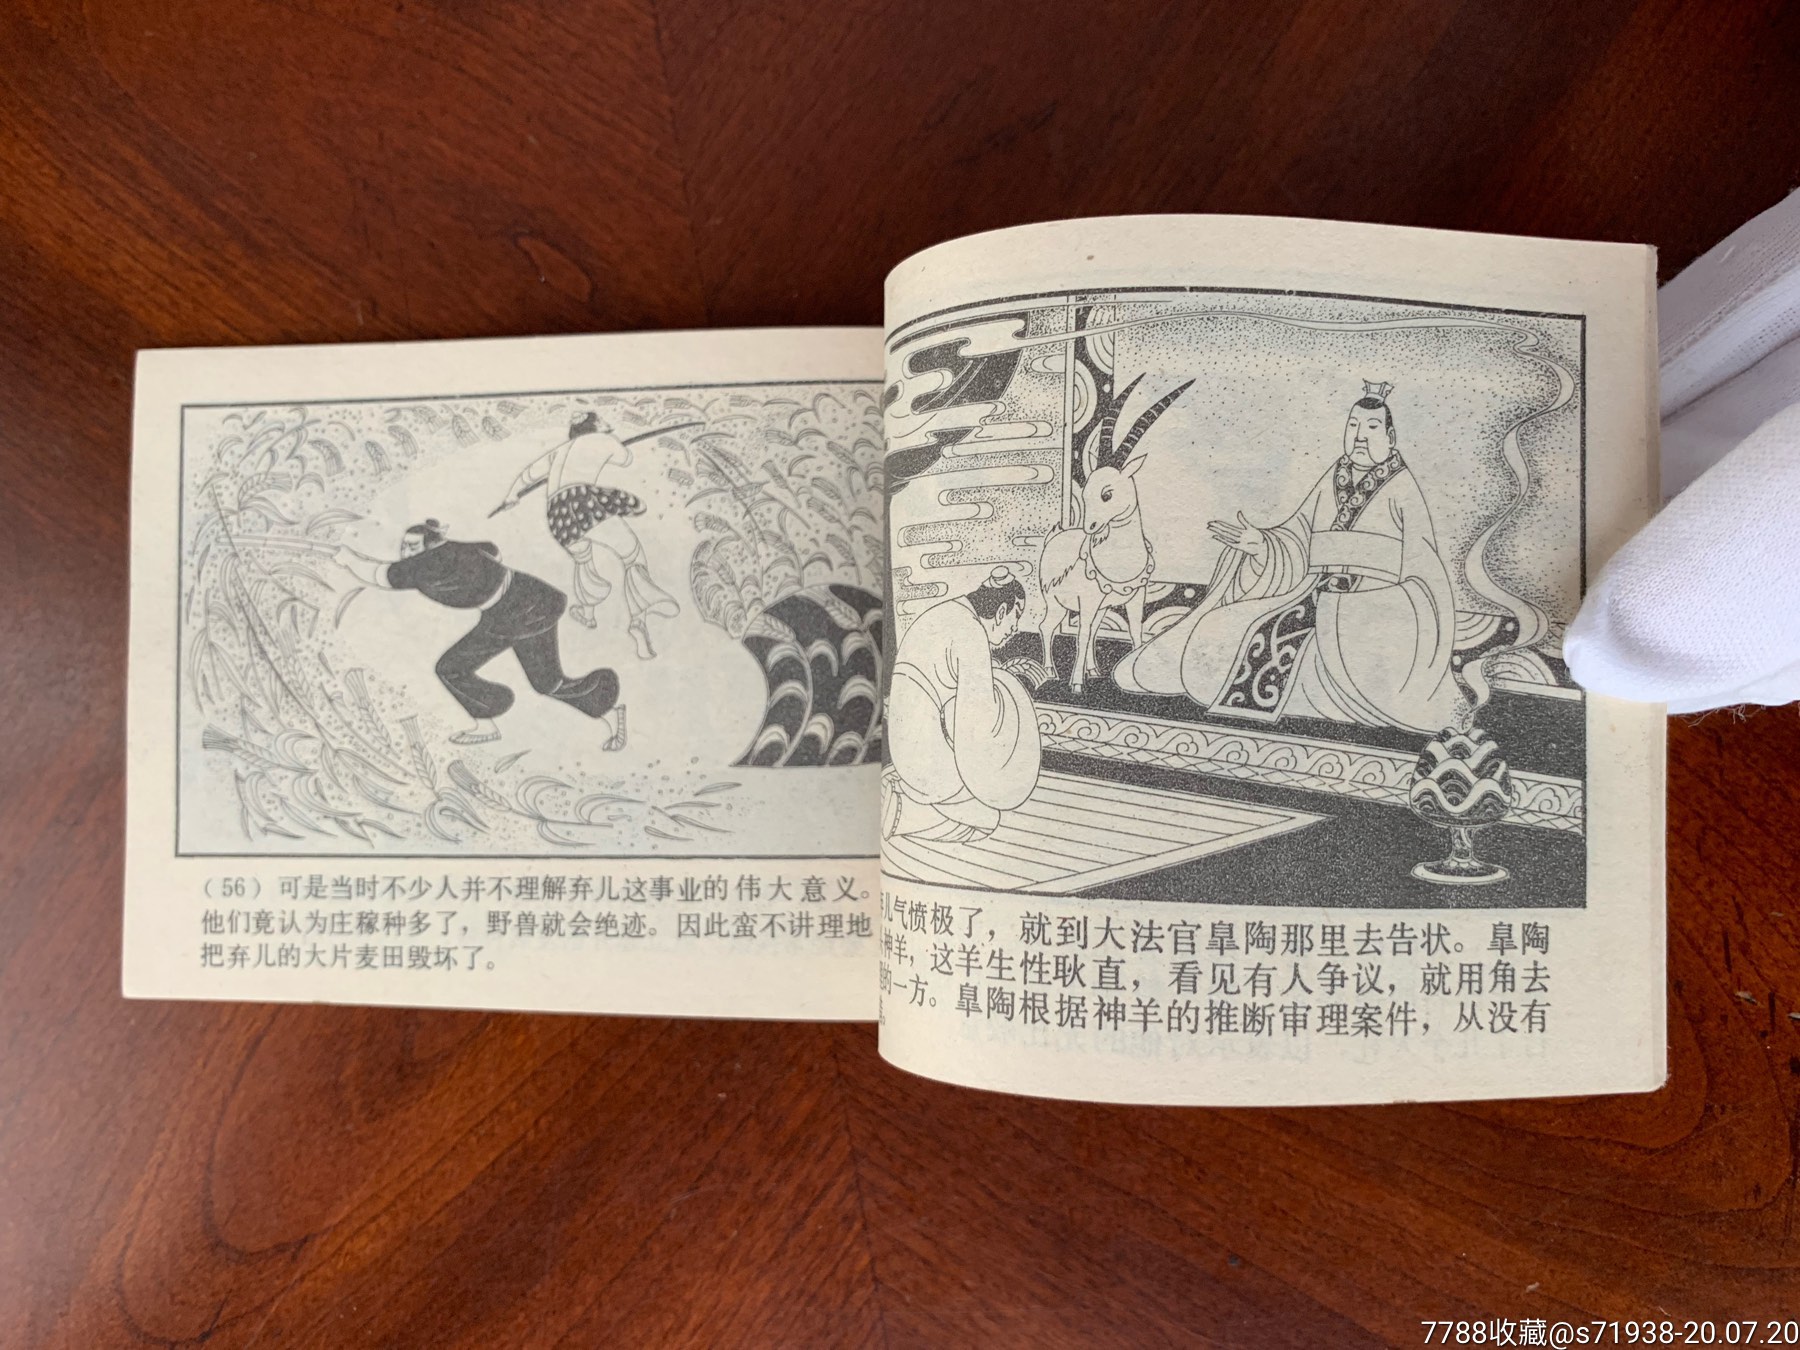 （56）可是当时不少人并不理解弃儿这事业的伟大意义。
他们竟认为庄稼种多了，野兽就会绝迹。因此蛮不讲理地
把弃儿的大片麦田毁坏了。
儿气愤极了，就到大法官皋陶那里去告状。皋陶
神羊，这羊生性耿直，看见有人争议，就用角去
的一方。皋陶根据神羊的推断审理案件，从没有
7788收藏@s71938-20.07.20